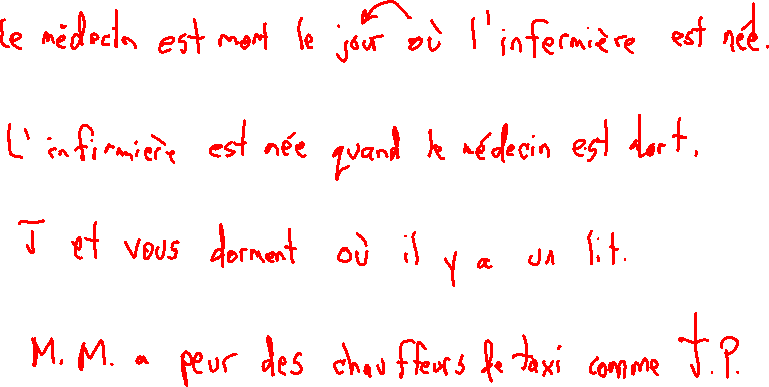 Le médecin est mort le jour où l'infermière est née.
L'infirmière est née quand le médecin est mort.
J et vous dorment où il y a un lit.
M. M. a peur des chauffeurs de taxi comme J.P.